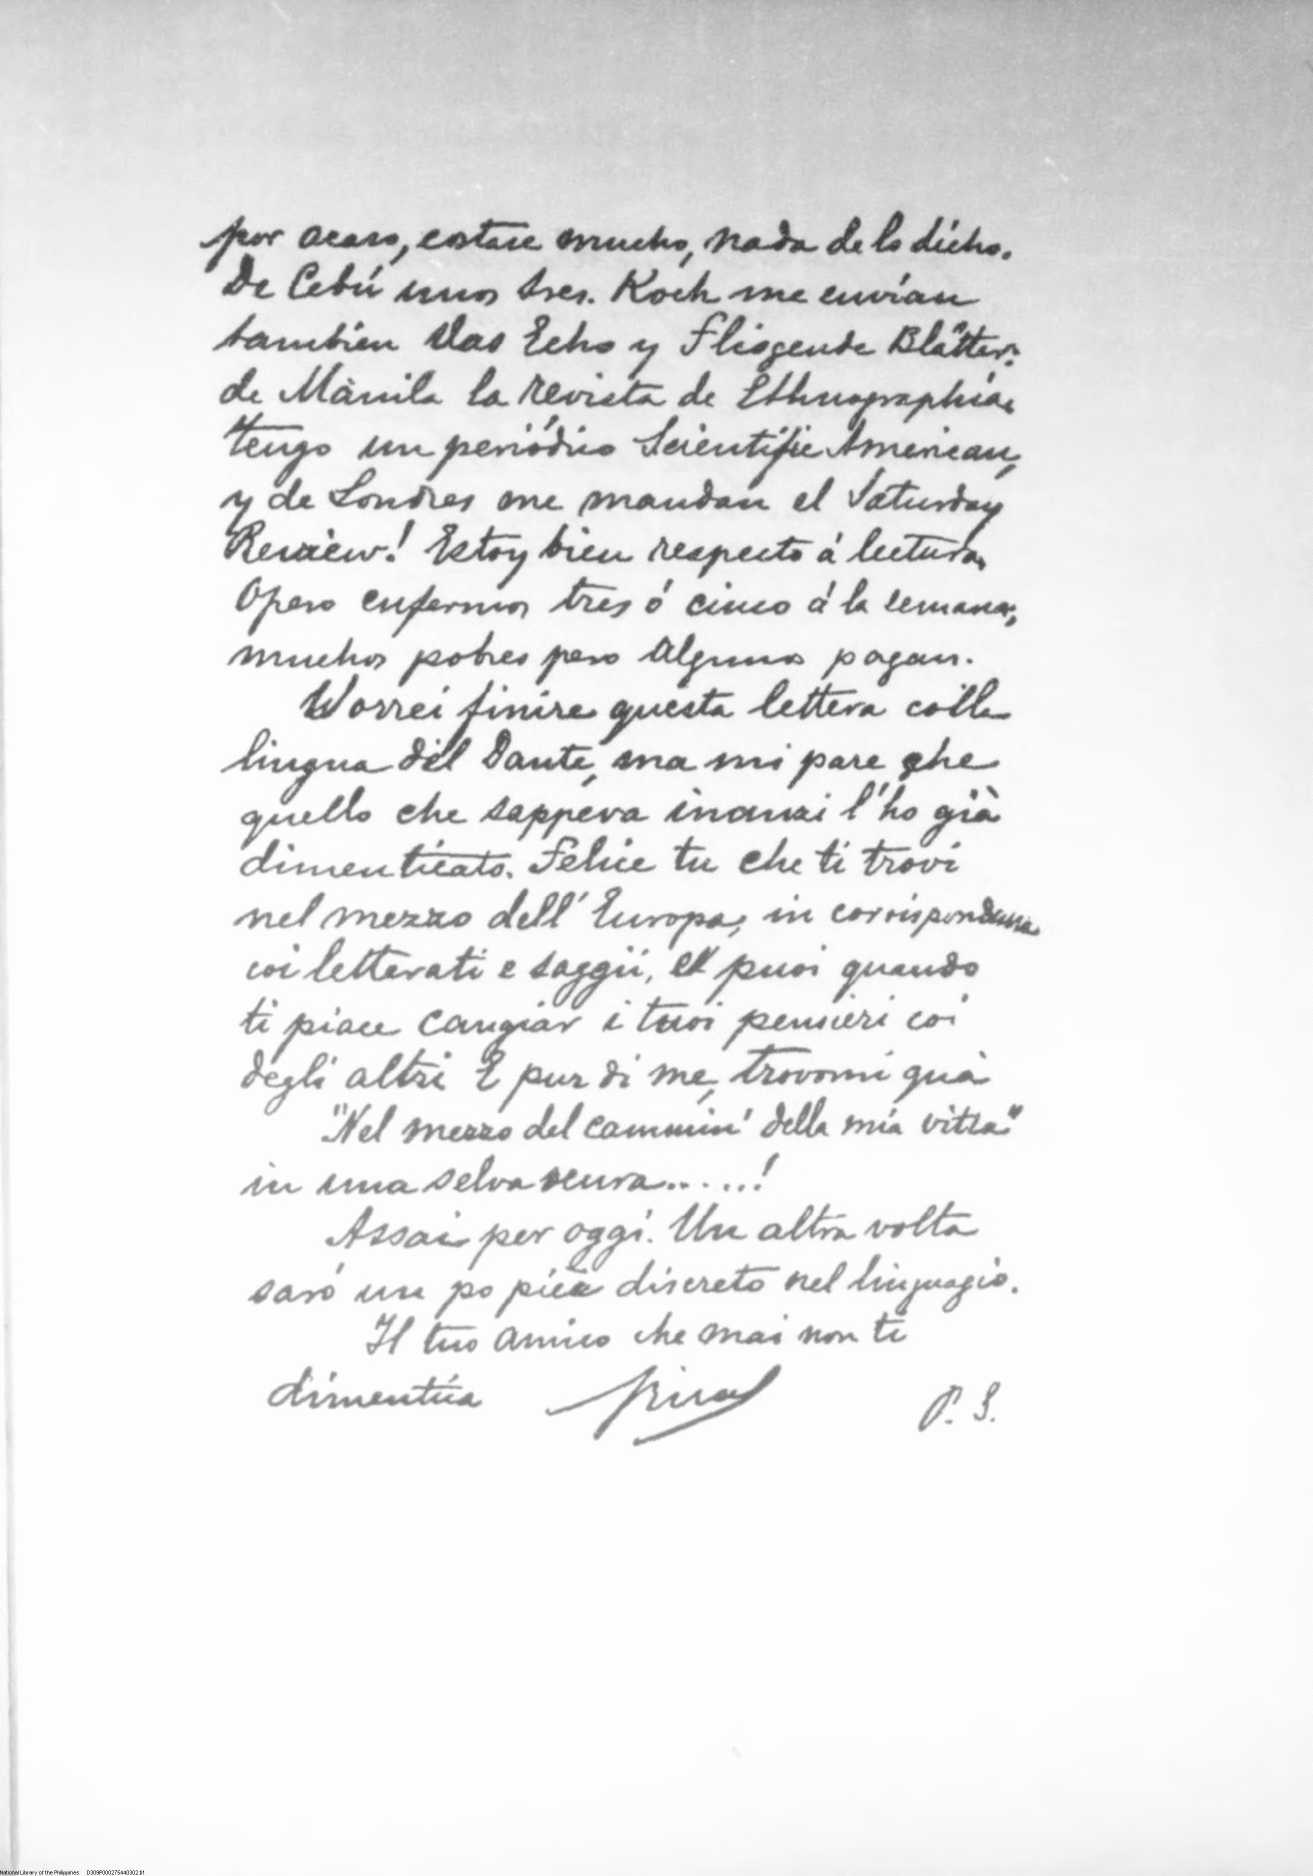 por acaso, costare mucho, nada de lo dicho.
De Cebú unos sres. Koch me envían
tambien Das Echo y Fliegende Blätter;
de Mánila la revista de Ethnographia,
tengo un periódico Scientific American,
y de Londres me mandan el Saturday
Review! Estoy bien respecto á lectura.
Opero enfermos tres ó cinco á la semana;
muchos pobres pero algunos pagan.
Worrei finire questa lettera colla
lingua del Dante, ma mi pare che
quello che sappeva inanzi l'ho già
dimenticato. Felice tu che ti trovi
nel mezzo dell' Europa, in corrispondenza
coi letterati e saggii, e puoi quando
ti piace cangiar i tuoi pensieri coi
degli altri E pur di me, trovomi quà
"Nel mezzo del cammin' della mia vitta"
in una selva scura......!
Assai per oggi. Un altra volta
saró un po piu discreto nel linguagio.
Il tuo amico che mai non ti
dimentica Rizal
P. S.
National Library of the Philippines